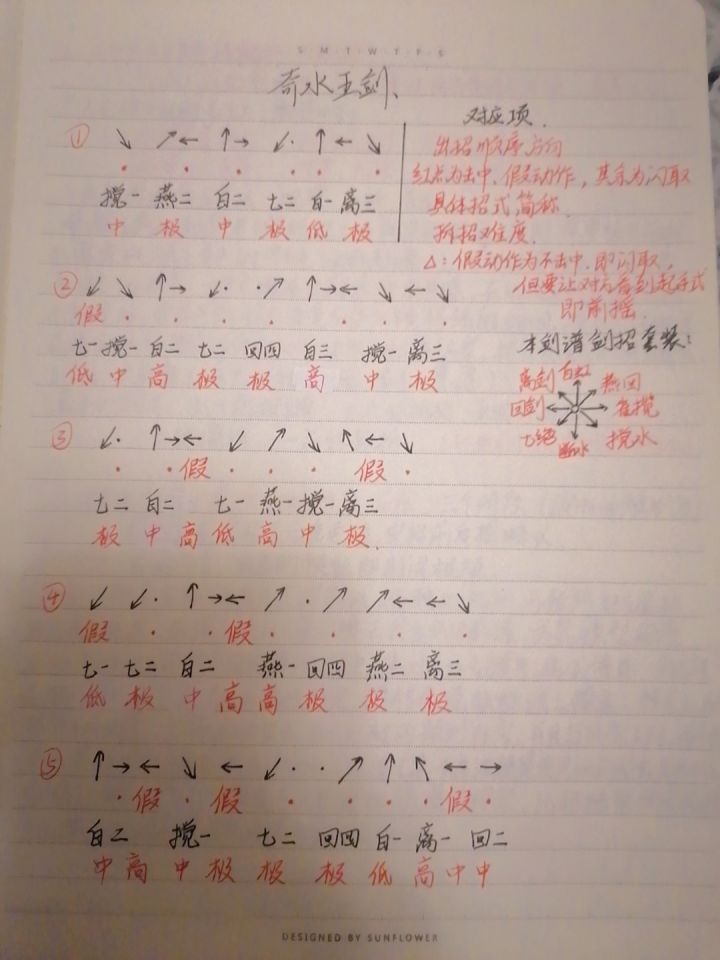 S M T W T F S
奇水王剑、
对应项.
① ↘ ↗← ↑→ ↙· ↑← ↘
· · · · · ·
搅一 燕二 白二 七二 白一 离三
中 极 中 极 低 极
出招顺序方向
红点为击中、假动作，其余为闪取
具体招式简称.
拆招难度.
△：假动作为不击中.即闪取，
但要让对方看到起手式
即前摇.
② ↙ ↘ ↑→ ↙· ·↗ ↑→← ↘ ←↘
假 · · · · · · ·
七一 搅一 白二 七二 回四 白三 搅一 离三
低 中 高 极 极 高 中 极
本剑谱剑招套装：
离剑 白虹 燕回
回剑 雀搅
七绝 断水 搅水
③ ↙· ↑→← ↙ ↗ ↘ ↖ ← ↘
· · 假 · · · 假 ·
七二 白二 七一 燕一 搅一 离三
极 中 高 低 高 中 极.
④ ↙ ↙· ↑→← ↗ ·↗ ↗← ←↘
假 · · 假 · · · ·
七一 七二 白二 燕一 回四 燕二 离三
低 极 中 高 高 极 极 极
⑤ ↑→← ↘ ← ↙· ·↗ ↑ ↖ ← →
· 假 · 假 · · · · 假 ·
白二 搅一 七二 回四 白一 离一 回二
中 高 中 极 极 极 低 高 中 中
DESIGNED BY SUNFLOWER